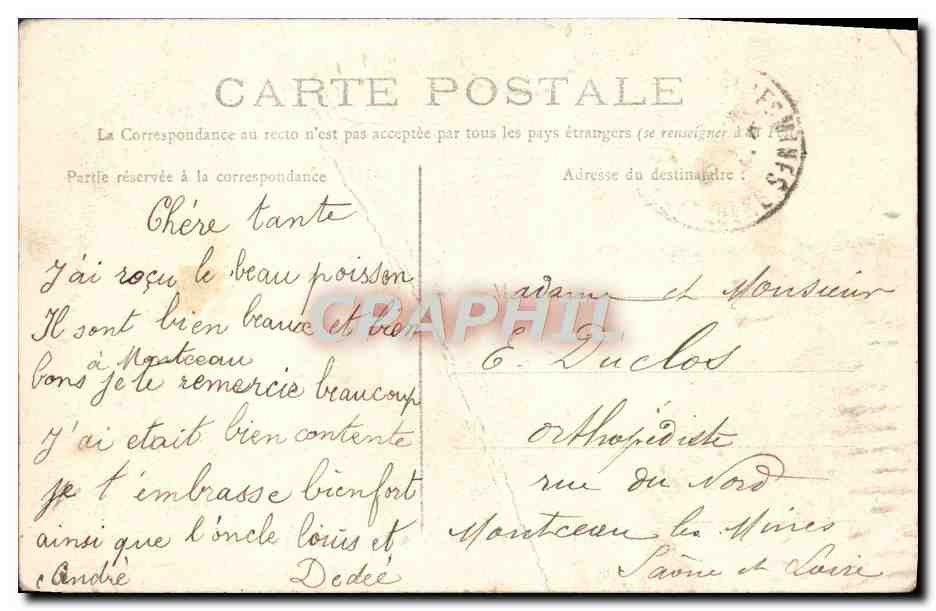 CARTE POSTALE
La Correspondance au recto n'est pas acceptée par tous les pays étrangers (se renseigner à la
Partie réservée à la correspondance
Adresse du destinataire :
Chére tante
J'ai roçu le beau poisson
Il sont bien beaux et bien
à Montceau
bons je te remercie beaucoup
J'ai etait bien contente
je t'émbrasse bienfort
ainsi que l'óncle louis et
André Dedeé
adame et Monsieur
E. Duclos
orthopédiste
rue du Nord
Montceau les Mines
Saône et Loire
CPAPHIL